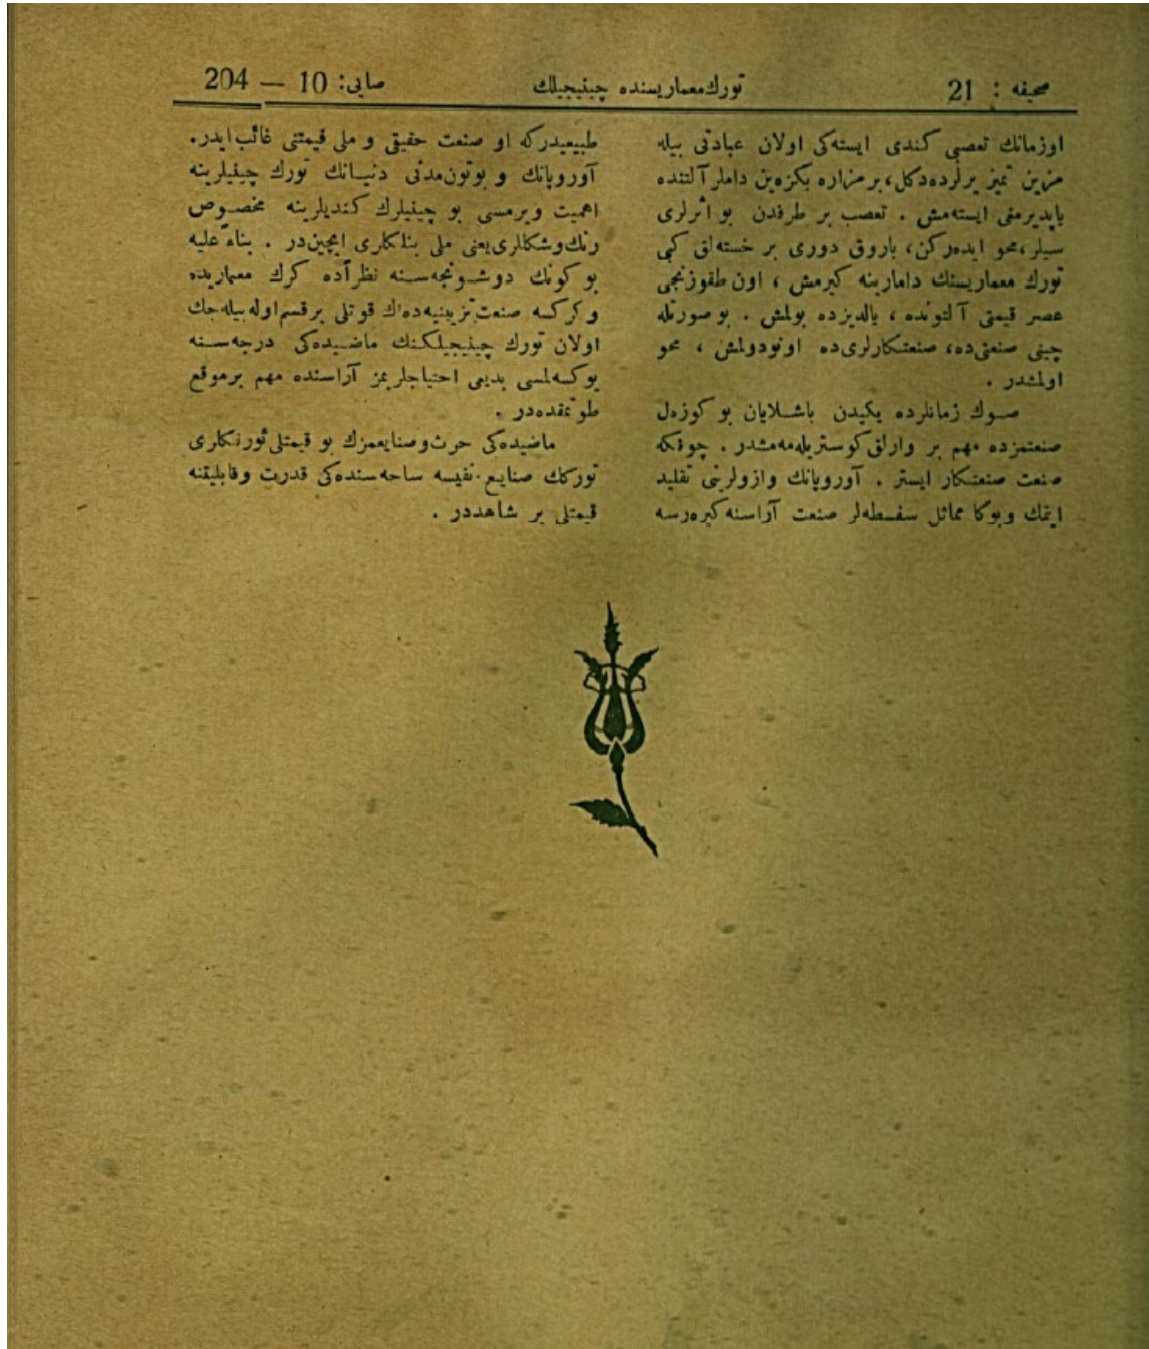 صحیفه : 21
تورك معماریسنده چینیجیلك
صایی: 10 — 204
اوزمانك تعصبی كندی ایسته‌كی اولان عبادتی بیله
مزین تمیز یرلرده‌دكل، بر مزاره بكزه‌ین داملر آلتنده
یاپدیرمغی ایسته‌مش . تعصب بر طرفدن بو اثرلری
سیلر، محو ایده‌ركن، باروق دوری بر خسته‌لق كبی
تورك معماریسنك دامارینه كیرمش ، اون طقوزنجی
عصر قیمتی آلتونده ، یالدیزده بولمش . بو صورتله
چینی صنعتی‌ده، صنعتكارلری‌ده اونودولمش ، محو
اولمشدر .
صوك زمانلرده یكیدن باشلایان بو كوزه‌ل
صنعتمزده مهم بر وارلق كوستریله‌مه‌مشدر . چونكه
صنعت صنعتكار ایستر . آوروپانك وازولرینی تقلید
ایتمك وبوكا مماثل سفسطه‌لر صنعت آراسنه كیره‌رسه
طبیعیدركه او صنعت حقیقی و ملی قیمتنی غائب ایدر.
آوروپانك و بوتون‌مدنی دنیانك تورك چینیلرینه
اهمیت ویرمسی بو چینیلرك كندیلرینه مخصوص
رنك‌وشكللری‌یعنی ملی بنلكلری ایچین‌در . بناءً علیه
بو كونك دوشونجه‌سنه نظرآده كرك معماریده
وكركسه صنعت‌تزیینیه‌ده‌اك قوتلی برقسم‌اوله‌بیله‌جك
اولان تورك چینیجیلكنك ماضیده‌كی درجه‌سنه
یوكسه‌لمسی بدیعی احتیاجلریمز آراسنده مهم برموقع
طوتمقده‌در .
ماضیده‌كی حرث‌وصنایعمزك بو قیمتلی‌ئورنكلری
توركك صنایع نفیسه ساحه‌سنده‌كی قدرت وقابلیتنه
قیمتلی بر شاهددر .